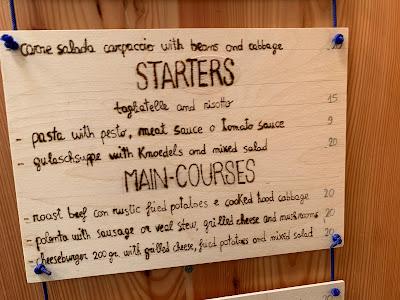 carne salada carpaccio with beans and cabbage
STARTERS
tagliatelle and risotto 15
- pasta with pesto, meat sauce o Tomato sauce 9
- gulaschsuppe with Knoedels and mixed salad 20
MAIN-COURSES
- roast beef con rustic fried potatoes e cooked hood cabbage 20
- polenta with sausage or veal stew, grilled cheese and mushrooms 20
- cheeseburger 200 gr. with grilled cheese, fried potatoes and mixed salad 20